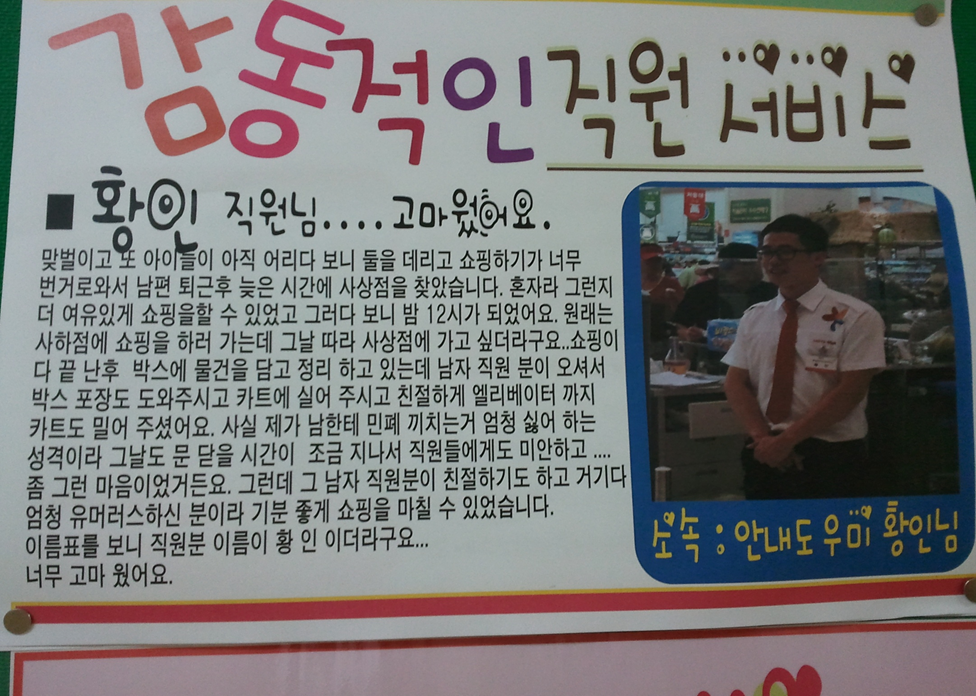 감동적인 직원 서비스
■ 황인 직원님.... 고마웠어요.
맞벌이고 또 아이들이 아직 어리다 보니 둘을 데리고 쇼핑하기가 너무
번거로와서 남편 퇴근후 늦은 시간에 사상점을 찾았습니다. 혼자라 그런지
더 여유있게 쇼핑을할 수 있었고 그러다 보니 밤 12시가 되었어요. 원래는
사하점에 쇼핑을 하러 가는데 그날 따라 사상점에 가고 싶더라구요..쇼핑이
다 끝 난후 박스에 물건을 담고 정리 하고 있는데 남자 직원 분이 오셔서
박스 포장도 도와주시고 카트에 실어 주시고 친절하게 엘리베이터 까지
카트도 밀어 주셨어요. 사실 제가 남한테 민폐 끼치는거 엄청 싫어 하는
성격이라 그날도 문 닫을 시간이 조금 지나서 직원들에게도 미안하고 ....
좀 그런 마음이었거든요. 그런데 그 남자 직원분이 친절하기도 하고 거기다
엄청 유머러스하신 분이라 기분 좋게 쇼핑을 마칠 수 있었습니다.
이름표를 보니 직원분 이름이 황 인 이더라구요...
너무 고마 웠어요.
소속 : 안내도우미 황인님